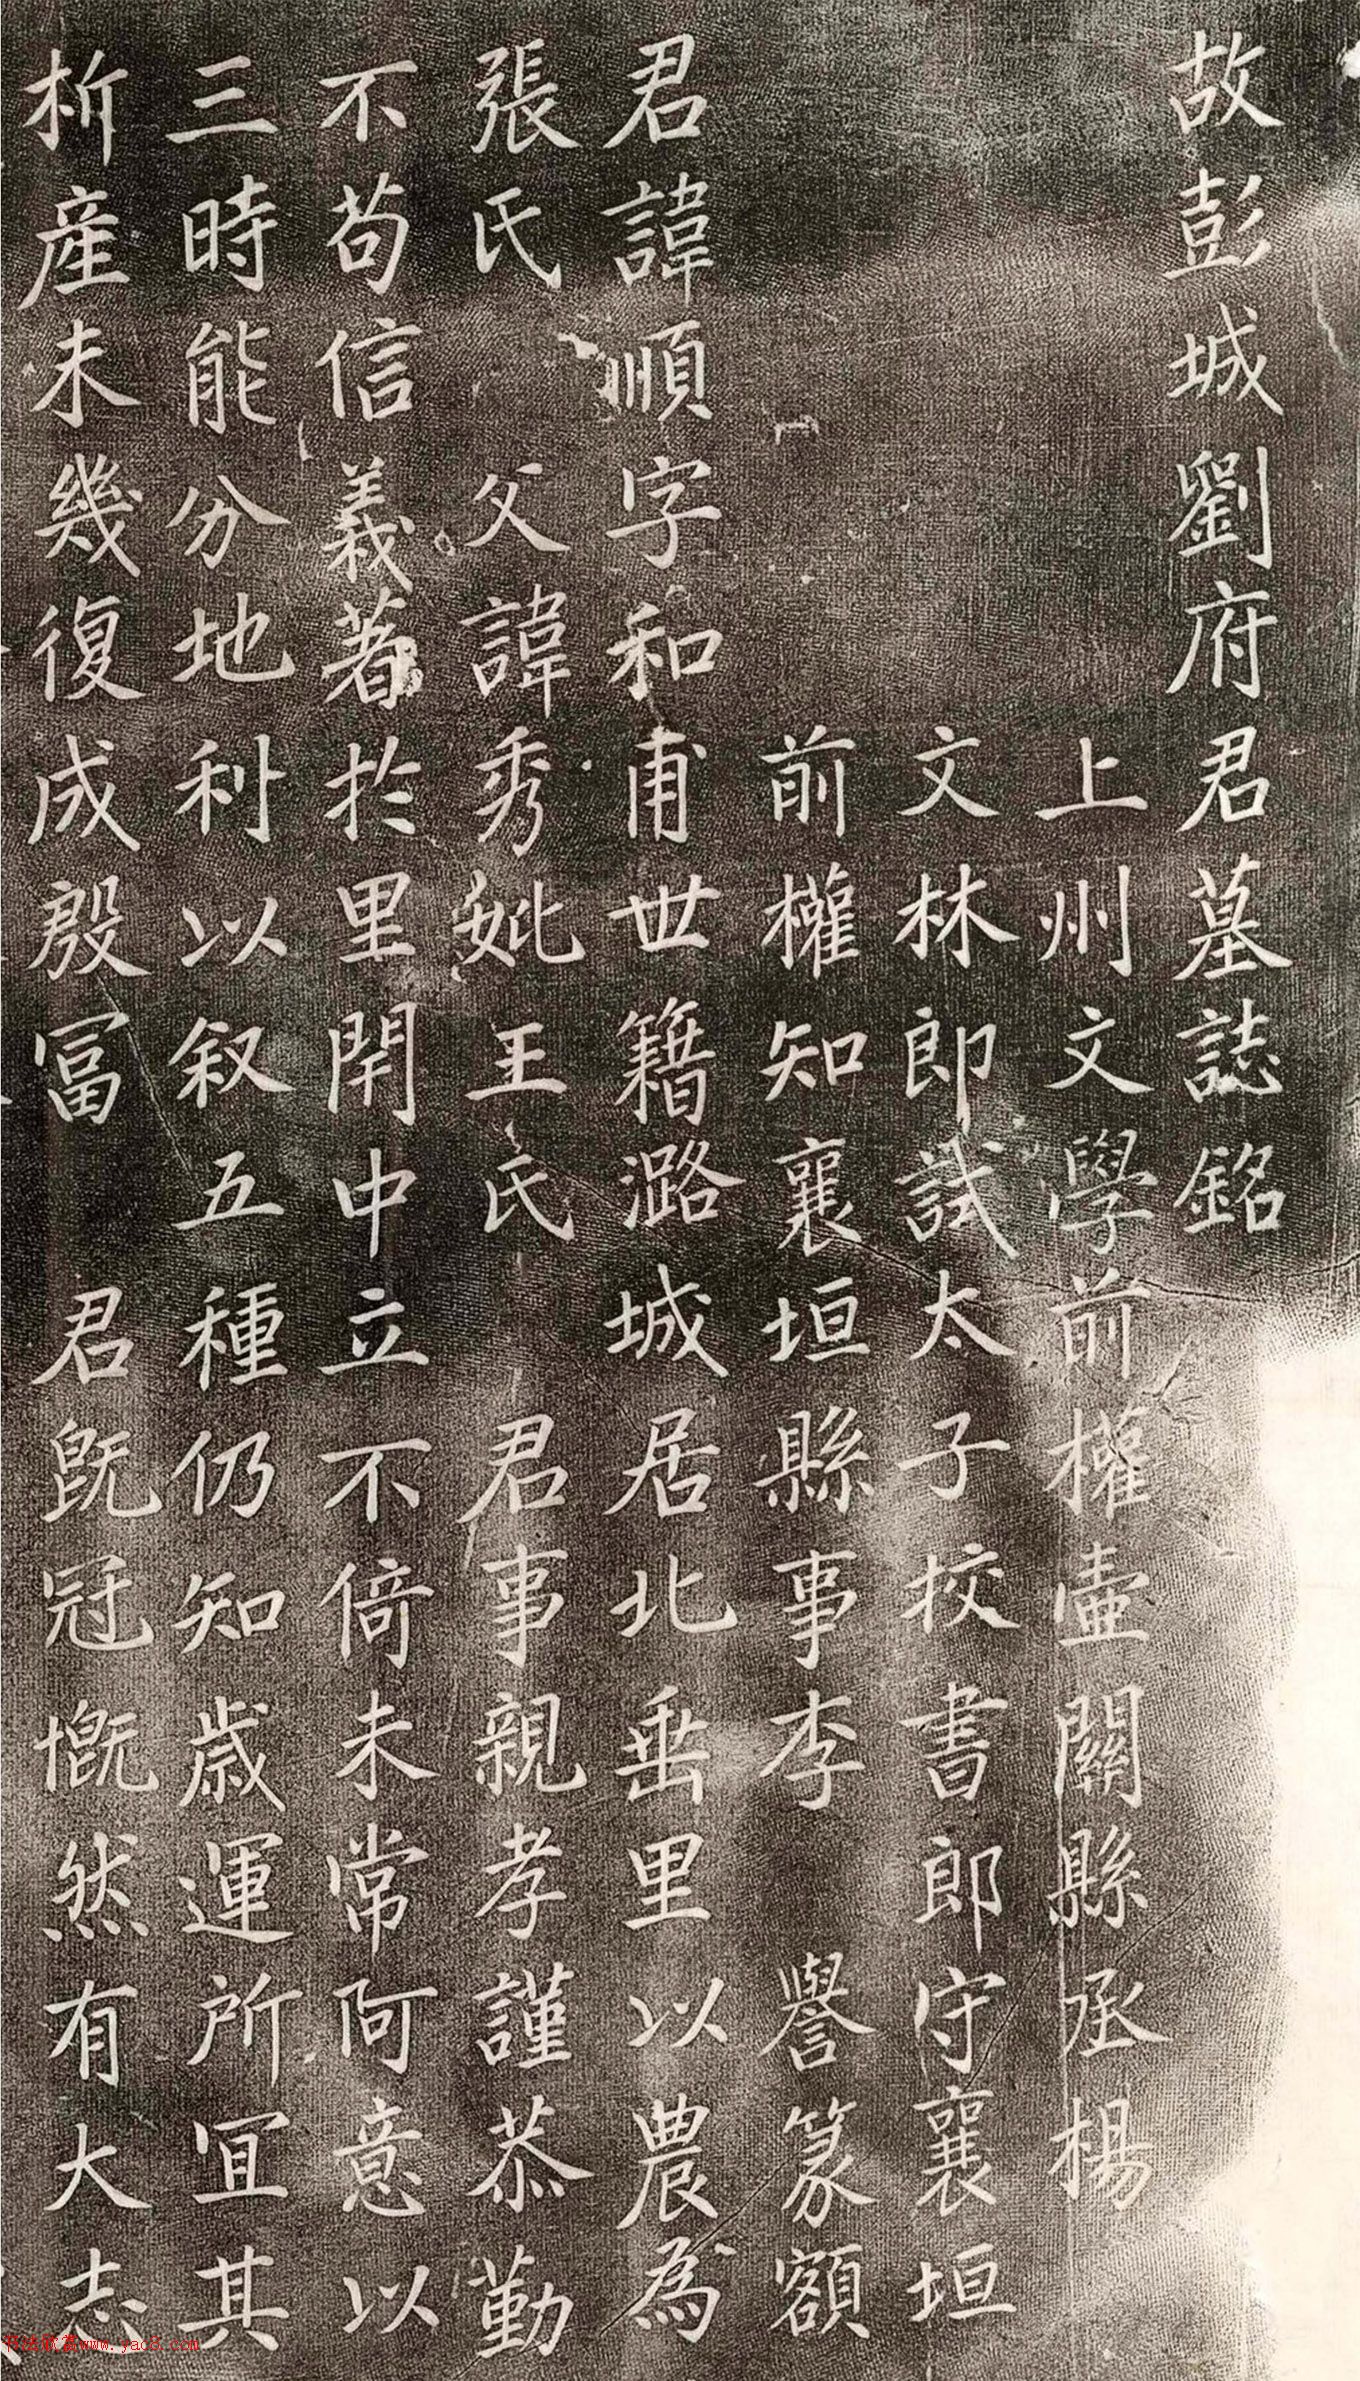 故彭城劉府君墓誌銘
上州文學前權壺關縣丞楊
文林郎試太子挍書郎守襄垣
前權知襄垣縣事李 譽篆額
君諱順字和甫世籍潞城居北垂里以農為
張氏 父諱秀妣王氏 君事親孝謹恭勤
不苟信義著於里閈中立不倚未常阿意以
三時能分地利以叙五種仍知歲運所宜其
析產未幾復成殷冨 君既冠慨然有大志
www.yac8.com